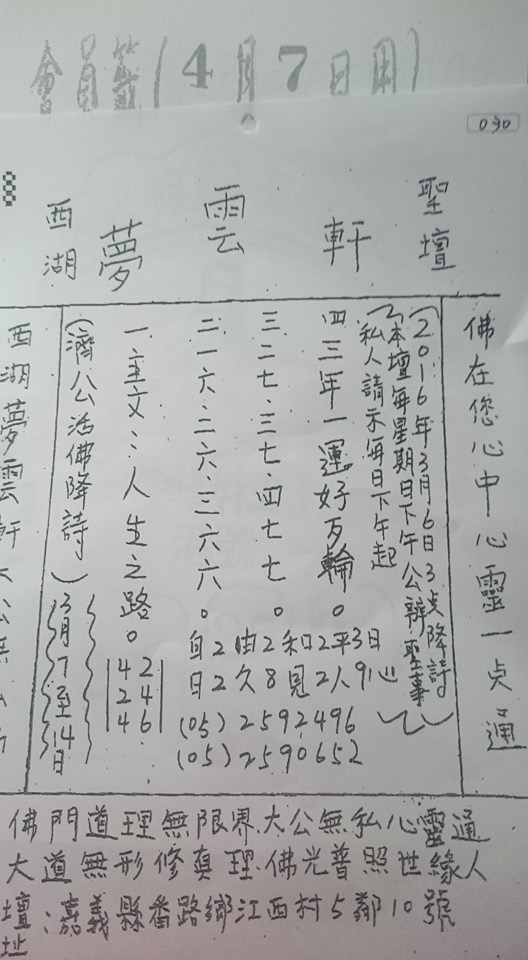 會員籤(4月7日用)
030
西湖夢雲軒聖壇
西湖夢雲軒大公無私
(濟公活佛降詩)
3月7至14日
一.主文:人生之路。
42
24
46
二一六.二六.三六六。
三二七.三七.四七七。
四三年一運好歹輪。
自2由2和2平3日
日2久8見2人9心
(05)2592496
(05)2590652
(2016年3月6日3点降詩)
(本壇每星期日下午公辦聖事)
私人請示每日下午起
佛在您心中心靈一貞通
佛門道理無限界.大公無私心靈通
大道無形修真理.佛光普照世緣人
壇址:嘉義縣番路鄉江西村5鄰10號